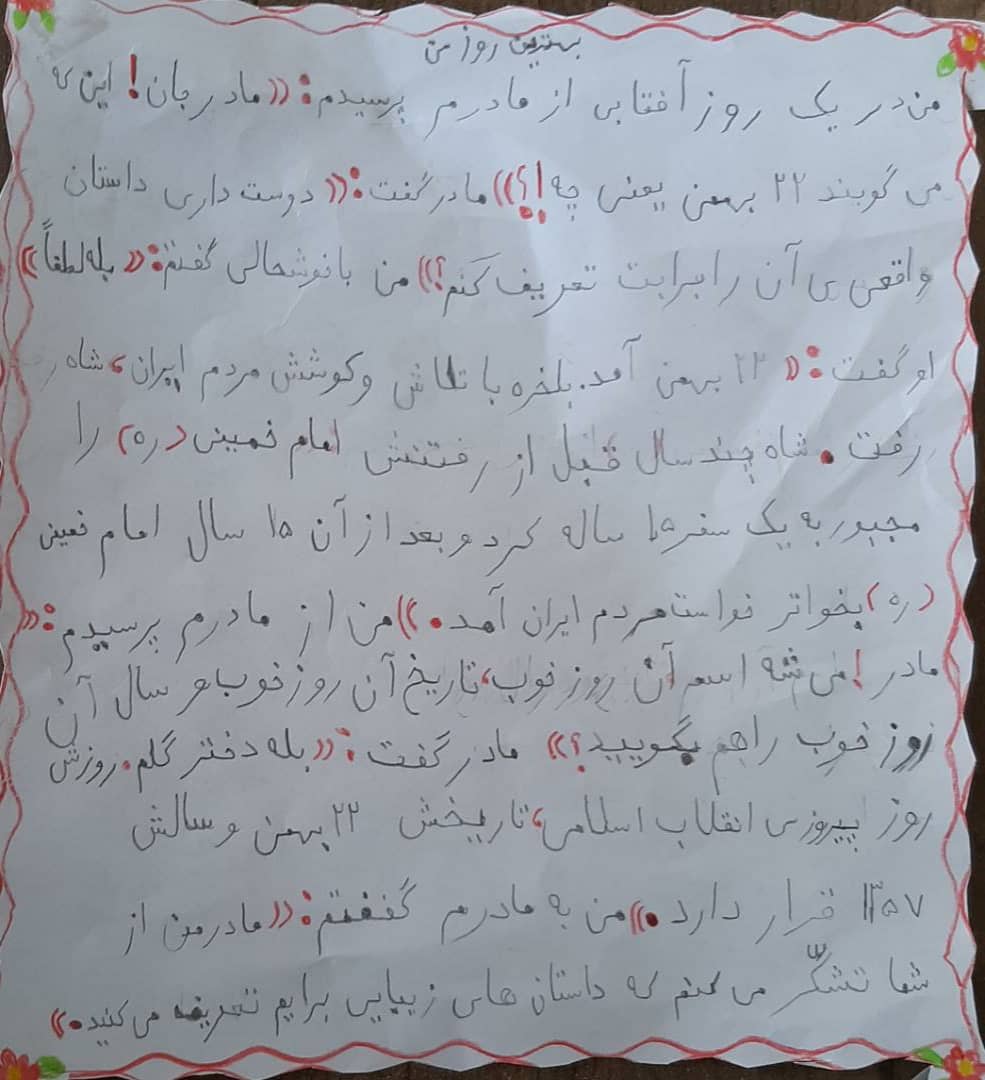 بهترین روز من
من در یک روز آفتابی از مادرم پرسیدم: «مادر جان! این که
می گویند ۲۲ بهمن یعنی چه!؟» مادر گفت: «دوست داری داستان
واقعی ی آن را برایت تعریف کنم؟» من باخوشحالی گفتم: «بله لطفاً»
او گفت: «۲۲ بهمن آمد. بلخره با تلاش و کوشش مردم ایران، شاه
رفت. شاه چند سال قبل از رفتنش امام خمینی (ره) را
مجبور به یک سفر ۱۵ ساله کرد و بعد از آن ۱۵ سال امام خمینی
(ره) بخواتر خواست مردم ایران آمد.» من از مادرم پرسیدم: «
مادر! می شه اسم آن روز خوب، تاریخ آن روز خوب و سال آن
روز خوب را هم بگویید؟» مادر گفت: «بله دختر گلم. روزش
روز پیروزی انقلاب اسلامی، تاریخش ۲۲ بهمن و سالش
۱۳۵۷ قرار دارد.» من به مادرم گففتم: «مادر من از
شما تشکّر می کنم که داستان های زیبایی برایم تعریف می کنید.»